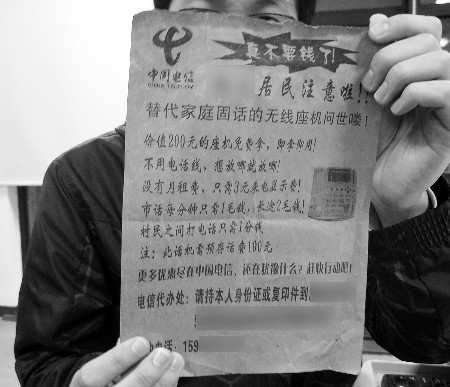 中国电信
CHINA TELECOM
真不要钱了!
居民注意啦!!
替代家庭固话的无线座机问世喽!
价值200元的座机免费拿,即拿即用!
不用电话线,想放哪就放哪!
没有月租费,只需3元来电显示费!
市话每分钟只需1毛钱,长途2毛钱!
村民之间打电话只需1分钱
注:此话机需预存话费100元
更多优惠尽在中国电信,还在犹豫什么?赶快行动吧!
电信代办处:请持本人身份证或复印件到
电话:159